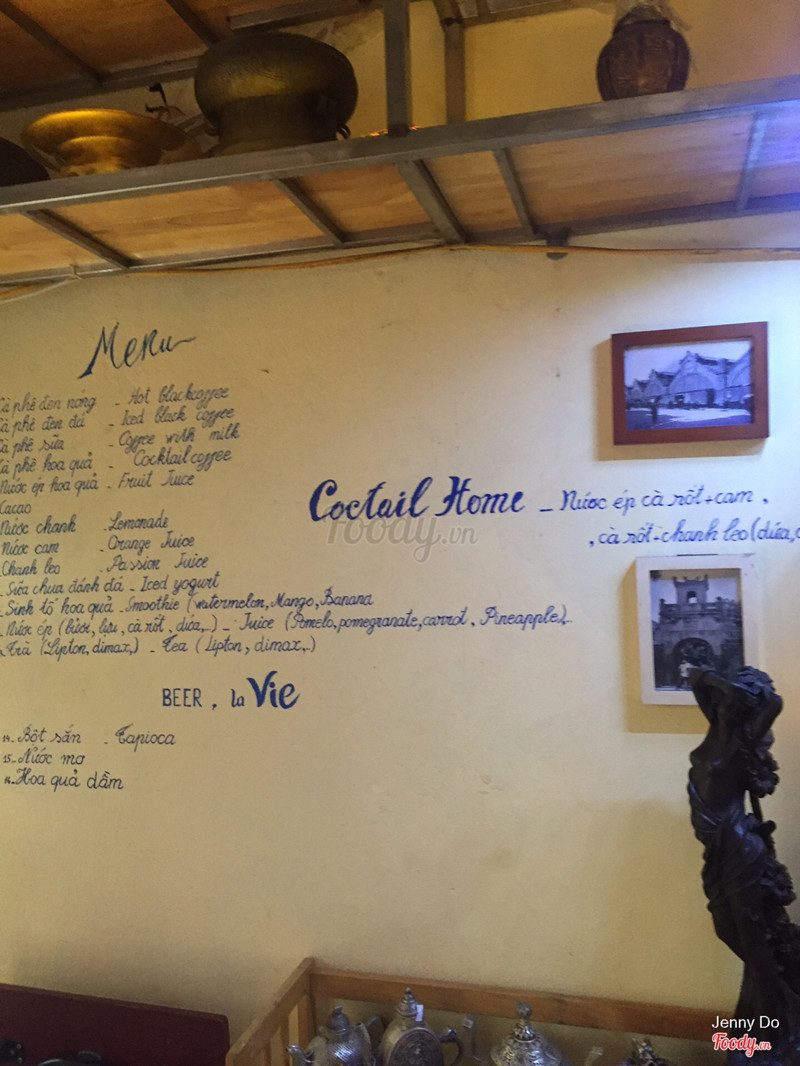 Menu
à phê đen nóng - Hot blackcoffee
à phê đen đá - Iced black coffee
à phê sữa - Coffee with milk
à phê hoa quả - Cocktail coffee
Nước ép hoa quả - Fruit Juice
Cacao
Nước chanh - Lemonade
Nước cam - Orange Juice
Chanh leo - Passion Juice
Sữa chua đánh đá - Iced yogurt
Sinh tố hoa quả - Smoothie (watermelon, Mango, Banana
Nước ép (bưởi, lựu, cà rốt, dứa,..) - Juice (Pomelo, pomegranate, carrot, Pineapple)..
Trà (Lipton, dimax,) - Tea (Lipton, dimax,..)
BEER, la Vie
14. Bột sắn - Tapioca
15. Nước mơ
16. Hoa quả dầm
Coctail Home - Nước ép cà rốt + cam,
, cà rốt - chanh leo (dứa,
foody.vn
Jenny Do
Foody.vn